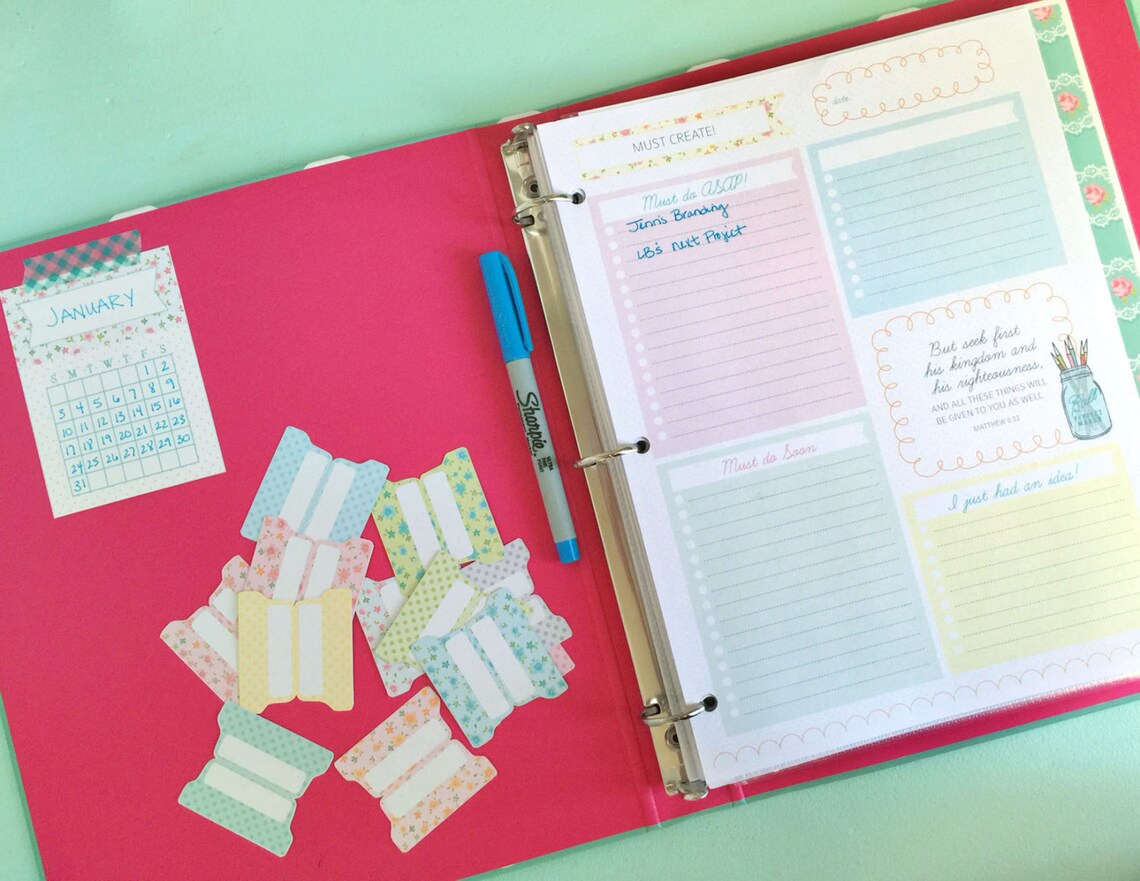 JANUARY
S M T W T F S
1 2
3 4 5 6 7 8 9
10 11 12 13 14 15 16
17 18 19 20 21 22 23
24 25 26 27 28 29 30
31
Sharpie
MUST CREATE!
date
Must do ASAP!
Jenn's Branding
LB's next Project
But seek first
his kingdom and
his righteousness,
AND ALL THESE THINGS WILL
BE GIVEN TO YOU AS WELL
MATTHEW 6:33
Ball
Must do Soon
I just had an idea!